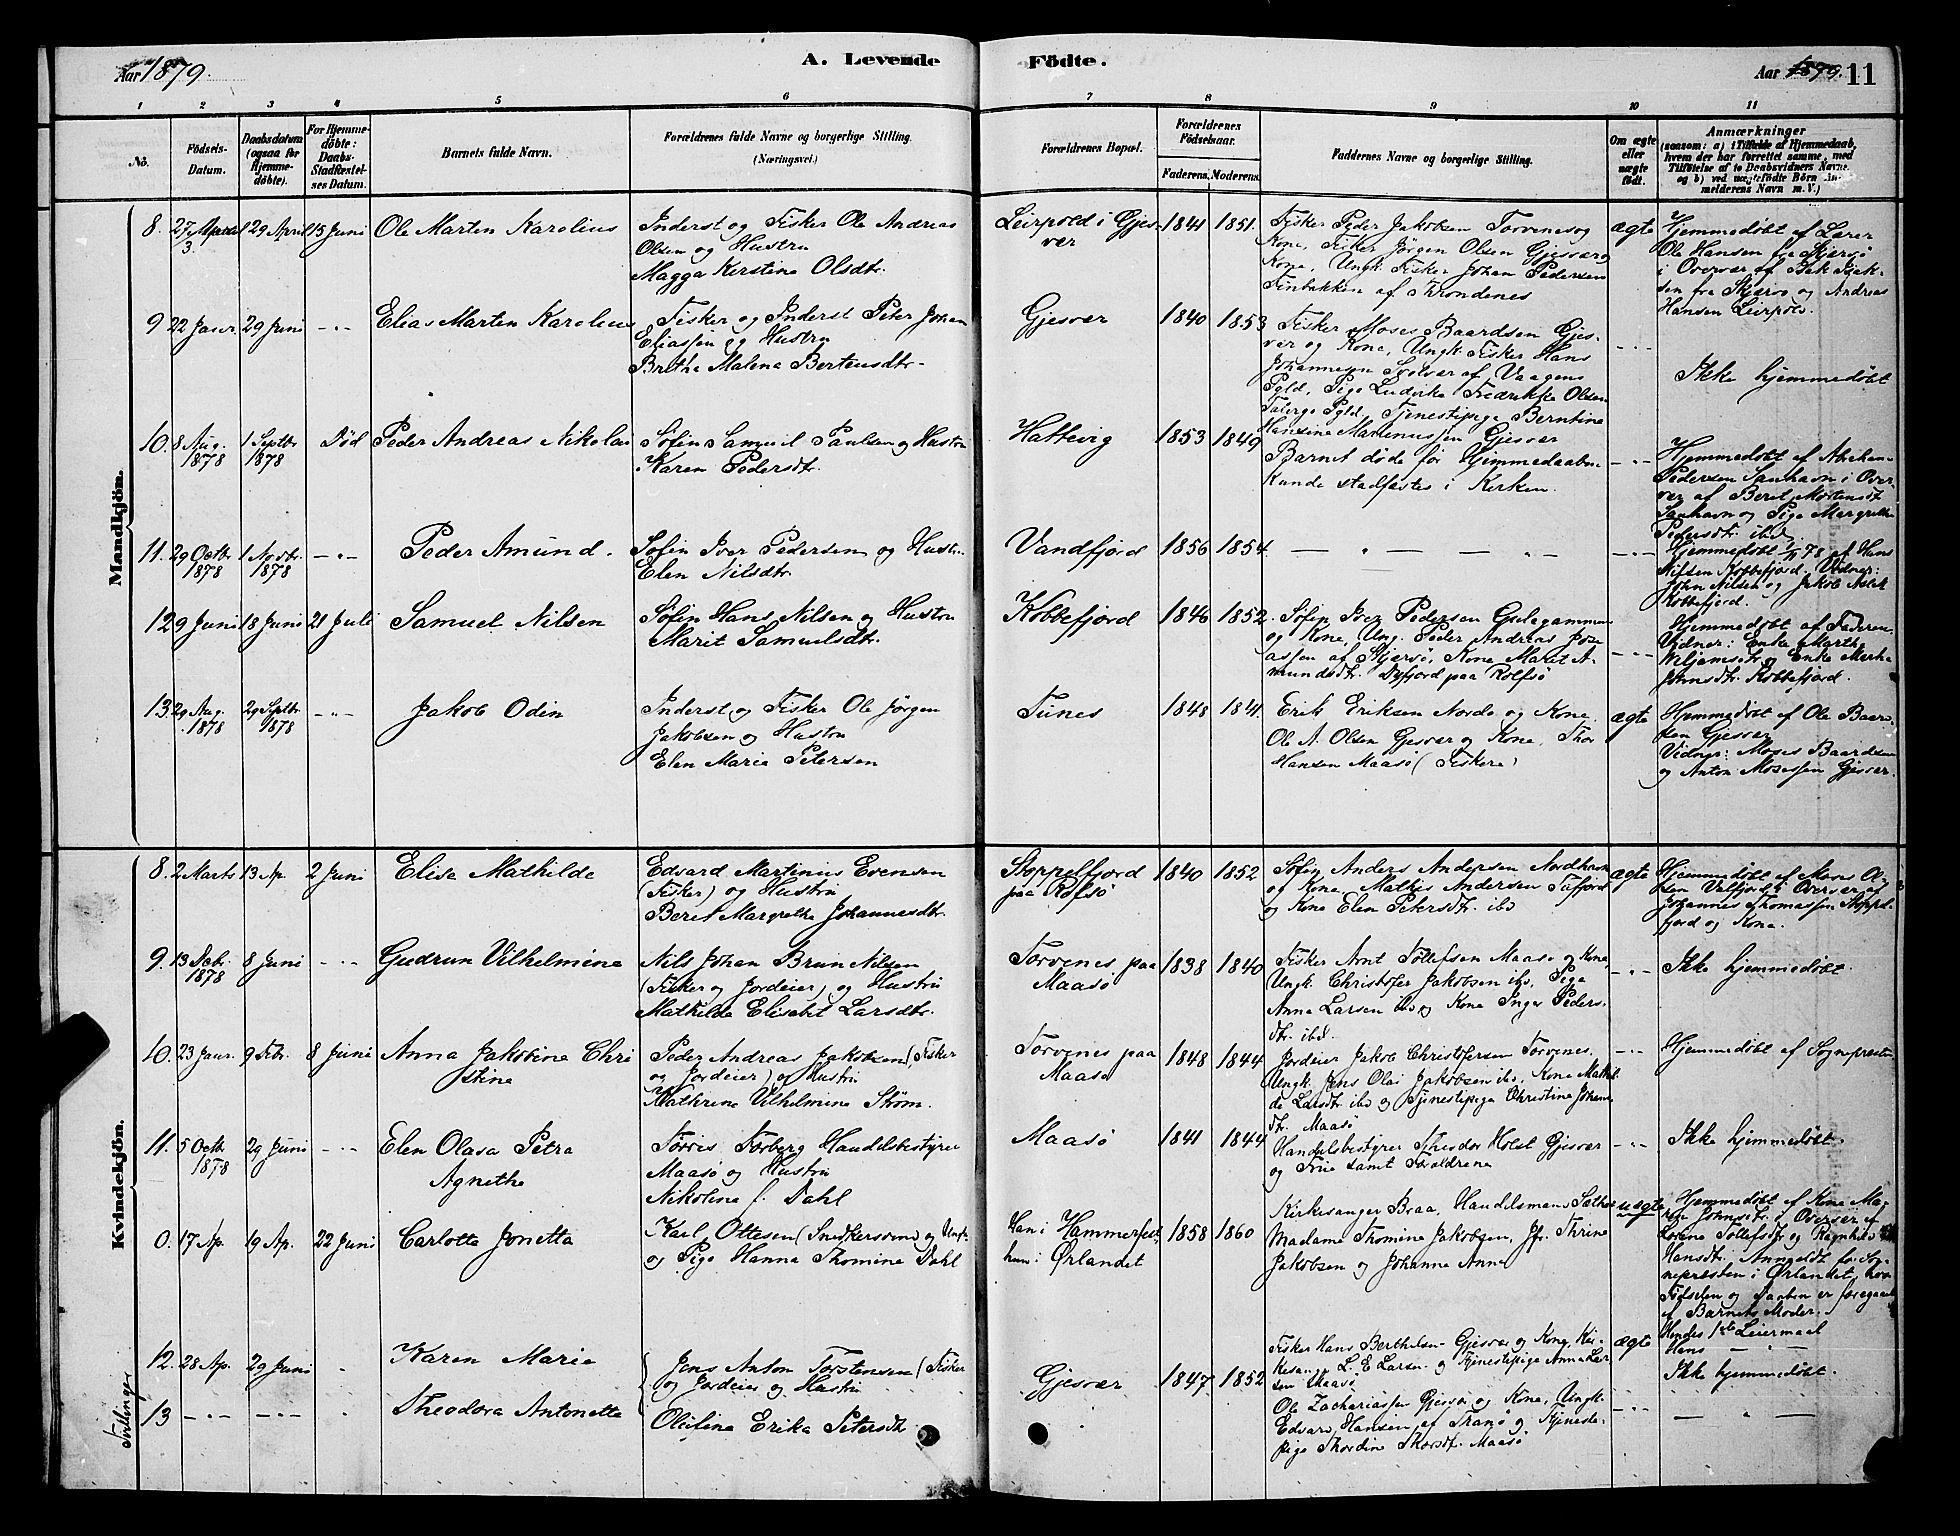 Aar 1879.
A. Levende Födte.
Aar 1879. 11
1 2 3 4 5 6 7 8 9 10 11
No.
Födsels-Datum.
Daabsdatum (ogsaa for Hjemme-döbte).
For Hjemme-döbte: Daabs-Stadfæstel-ses Datum.
Barnets fulde Navn.
Forældrenes fulde Navne og borgerlige Stilling.
(Næringsvei.)
Forældrenes Bopæl.
Forældrenes Födselsaar.
Faderens. Moderens.
Faddernes Navne og borgerlige Stilling.
Om ægte eller uægte födt.
Anmærkninger
(saasom: a) i Tilfælde af Hjemmedaab, hvem der har forrettet samme, med Tilföielse af to Daabsvidners Navne, og b) ved uægtefödte Börn An-melderens Navn m. V.)
Mandkjön.
8. 27/3 29 April 15 Juni
Ole Marten Karolius
Inderst og Fisker Ole Andreas
Olsen og Hustru
Magga Kerstine Olsdtr.
Leirpold i Gjes-
vær
1841 1851.
Fisker Peder Jakobsen Torvenes og
Kone, Fisker Jörgen Olsen Gjesvær og
Kone, Ungk. Fisker Johan Pedersen
Finbakken af Throndenes
ægte
Hjemmedøbt af Lærer
Ole Hansen fra Skjersö
i Overvær af
sen fra Skjervø og Andreas
Hansen Leirpold.
9 22 Janur. 29 Juni -"-
Elias Marten Karolius
Fisker og Inderst Peter Johan
Eliassen og Hustru
Britha Malena Berteusdtr.
Gjesvær
1840 1853
Fisker Moses Baardsen Gjes-
vær og Kone, Ungk. Fisker Hans
Johannesen Svolvær af Vaagens
Pgld, Pige Ludvika Fredrikke Olsen
Talvigs Pgld, Tjenestepige Berntine
Hansine Marenussen Gjesvær
-"-
Ikke hjemmedöbt
10. 8 Aug. 1878 1 Septbr 1878 Död
Peder Andreas Nikolai
Söfin Samuel Paulsen og Hustru
Karen Pedersdtr.
Hattevig
1853 1849
Barnet döde för Hjemmedaaben
kunde stadfæstes i Kirken.
-"-
Hjemmedöbt af Abraham
Pedersen Sanhavn i Over-
vær af Beret Mortensdt
Sanhavn og Pige Margrethe
Pedersdtr. ibd.
11. 29 Octbr 1878 1 Novbr 1878 -"-
Peder Amund.
Söfin Iver Pedersen og Hustru
Elen Nilsdtr.
Vandfjord
1856 1854.
— " — — " —
-"-
Hjemmedöbt 1/11 78 af Hans
Nilsen Kobbefjord. Vidner:
John Nilsen og Jakob Aslak
Kobbefjord.
12 9 Juni 18 Juni 21 Juli
Samuel Nilsen
Söfin Hans Nilsen og Hustru
Marit Samuelsdtr.
Kobbefjord
1846 1852.
Söfin Iver Pedersen Gulagammen
og Kone, Ung. Peder Andreas Joza-
assen af Skjersö, Kone Maret A-
mundsdtr. Dyfjord paa Rolfsö
-"-
Hjemmedöbt af Faderen.
Vidner: Enke Marthe
Wiljamsdtr og Enke Merthe
Johnsdtr. Kobbefjord.
13. 29 Aug. 1878 29 Septbr 1878 -"-
Jakob Odin
Inderst og Fisker Ole Jörgen
Jakobsen og Hustru
Elen Maria Petersen
Tunes
1848 1841.
Erik Eriksen Nordo og Kone,
Ole A. Olsen Gjesvær og Kone, Thor
Hansen Maasö (Fiskere)
ægte
Hjemmedøbt af Ole Baard-
sen Gjesvær
Vidner: Moses Baardsen
og Anton Mosessen Gjesvær.
Kvindekjön.
8. 2 Marts 13 Ap. 2 Juni
Elisa Mathilde
Edvard Martinius Evensen
(Fisker) og Hustru
Beret Margrethe Johannesdtr.
Stoppelfjord
paa Rolfsö
1840 1852
Söfin Anders Andersen Nordhavn
og Kone, Mathis Andersen Tufjord
og Kone Elen Petersdtr. ibd
ægte
Hjemmedöbt af Hans Ol-
sen Valfjord i Overvær af
Johannes Thomassen Stoppel-
fjord og Kone.
9. 13 Debr. 1878 8 Juni -"-
Gudrun Vilhelmine
Nils Johan Brun Nilsen
(Fisker og Jordeier) og Hustru
Mathilde Elisabet Larsdtr.
Torvenes paa
Maasö
1838 1840
Fisker Arnt Tollefsen Maasö og Kone,
Ungk. Christofer Jakobsen ibd, Pige
Anna Larsen ibd og Kone Inger Peders-
dtr. ibd.
-"-
Ikke hjemmedöbt.
10. 23 Janr. 9 Febr. 8 Juni
Anna Jakobine Chri
stine
Peder Andreas Jakobsen (Fisker
og Jordeier) og Hustru
Kathrine Vilhelmine Ström.
Torvenes paa
Maasö
1848 1844
Jordeier Jakob Christofersen Torvenes.
Ungk. Jens Olai Jakobsen ibd. Kone Mathil-
de Larsdtr ibd og Tjenestepige Christine Johans
dtr. Maasö
-"-
Hjemmedöbt af Sognepresten
11. 5 Octb 1878 29 Juni -"-
Elen Olasa Petra
Agnethe
Torris Forberg Handelsbestyrer
Maasö og Hustru
Nikoline f. Dahl
Maasö
1841 1844
Handelsbestyrer Theodor Holst Gjesvær
og Frue samt Forældrene
-"-
Ikke hjemmedöbt.
0. 17 Ap. 19 Ap. 22 Juni
Carlotta Jonetta
Karl Ottesen (Snedkersvend og Ungk.
og Pige Hanna Thomine Dahl
Han i Hammerfest,
hun i Ørlandet
1858 1860
Kirkesanger Braa, Handelsmand
Madame Thomine Jakobsen, Jfr. Thrine
Jakobsen og Johanne Anne
uægte
Hjemmedöbt af Kone Ma-
ren Johnsdtr. i Overvær af
Lovine Tollefsdtr og Ragnhild
Hansdtr. Anmeldt for Sog-
nepresten i Ørlandet, hvor
Födselen og Daaben er foregaaet
af Barnets Moder.
Hendes 1ste Leiermaal
Hans — " —
Tvillinger
12. 28 Ap. 29 Juni "
Karen Marie
Jens Anton Torstensen (Fisker
og Jordeier og Hustru
Olufina Erika Petersdtr
Gjesvær
1847 1852
Fisker Hans Berthelsen Gjesvær og Kone, Kir-
kesanger L. E Larsen og Tjenestepige Anna Lar
sen Maasö
ægte
Ikke hjemmedöbt.
13 -"- -"- "
Theodora Antonette
Ole Zachariassen Gjesvær og Kone, Ungk.
Edvard Hansen af Tranö og Tjeneste-
pige Thordine Thorsdtr. Maasö
-"-
— " —